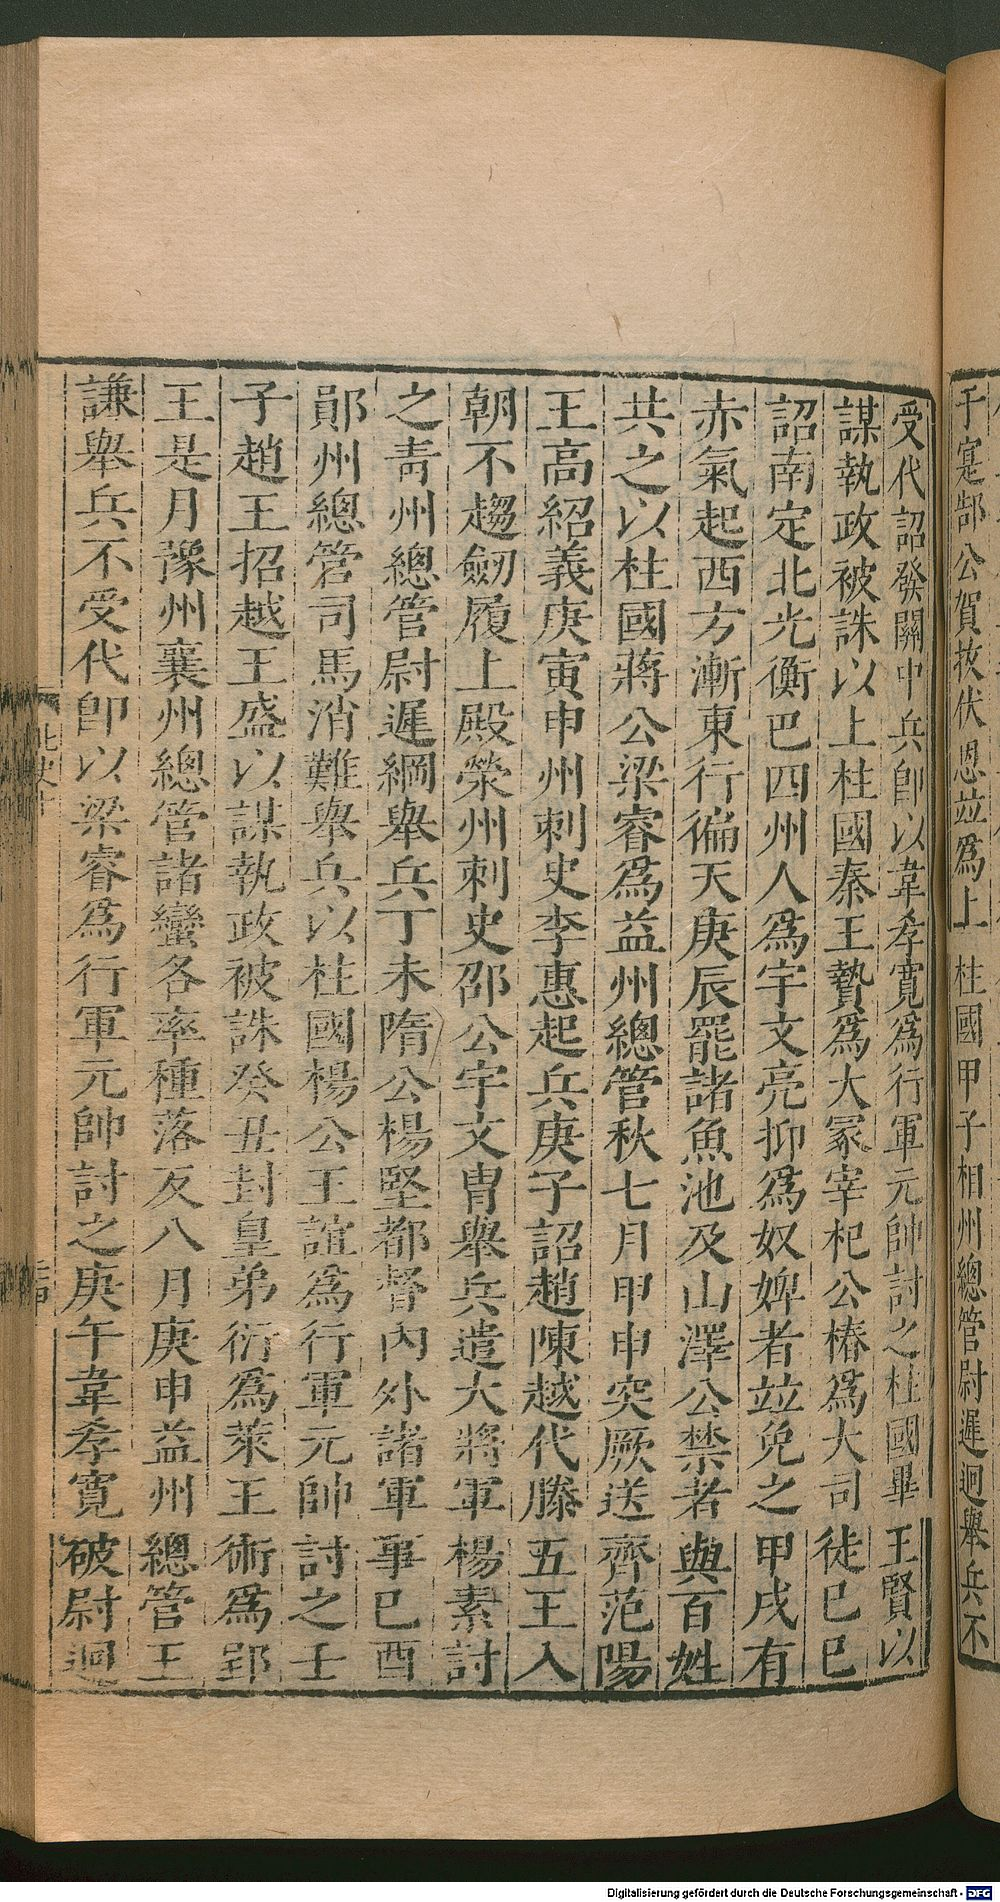 于寔郜公賀拔伏恩並爲上柱國甲子相州總管尉遲迥舉兵不
受代詔發關中兵即以韋孝寬爲行軍元帥討之柱國畢王賢以
謀執政被誅以上柱國秦王贄爲大冢宰杞公椿爲大司徒巳巳
詔南定北光衡巴四州人爲宇文亮抑爲奴婢者並免之甲戌有
赤氣起西方漸東行徧天庚辰罷諸魚池及山澤公禁者與百姓
共之以柱國蔣公梁睿爲益州總管秋七月甲申突厥送齊范陽
王高紹義庚寅申州刺史李惠起兵庚子詔趙陳越代滕五王入
朝不趨劒履上殿滎州刺史邵公宇文冑舉兵遣大將軍楊素討
之青州總管尉遲綱舉兵丁未隋公楊堅都督內外諸軍事巳酉
鄖州總管司馬消難舉兵以柱國楊公王誼爲行軍元帥討之壬
子趙王招越王盛以謀執政被誅癸丑封皇弟衍爲萊王術爲郢
王是月豫州襄州總管諸蠻各率種落反八月庚申益州總管王
謙舉兵不受代即以梁睿爲行軍元帥討之庚午韋孝寬破尉迥
北史十
Digitalisierung gefördert durch die Deutsche Forschungsgemeinschaft - DFG